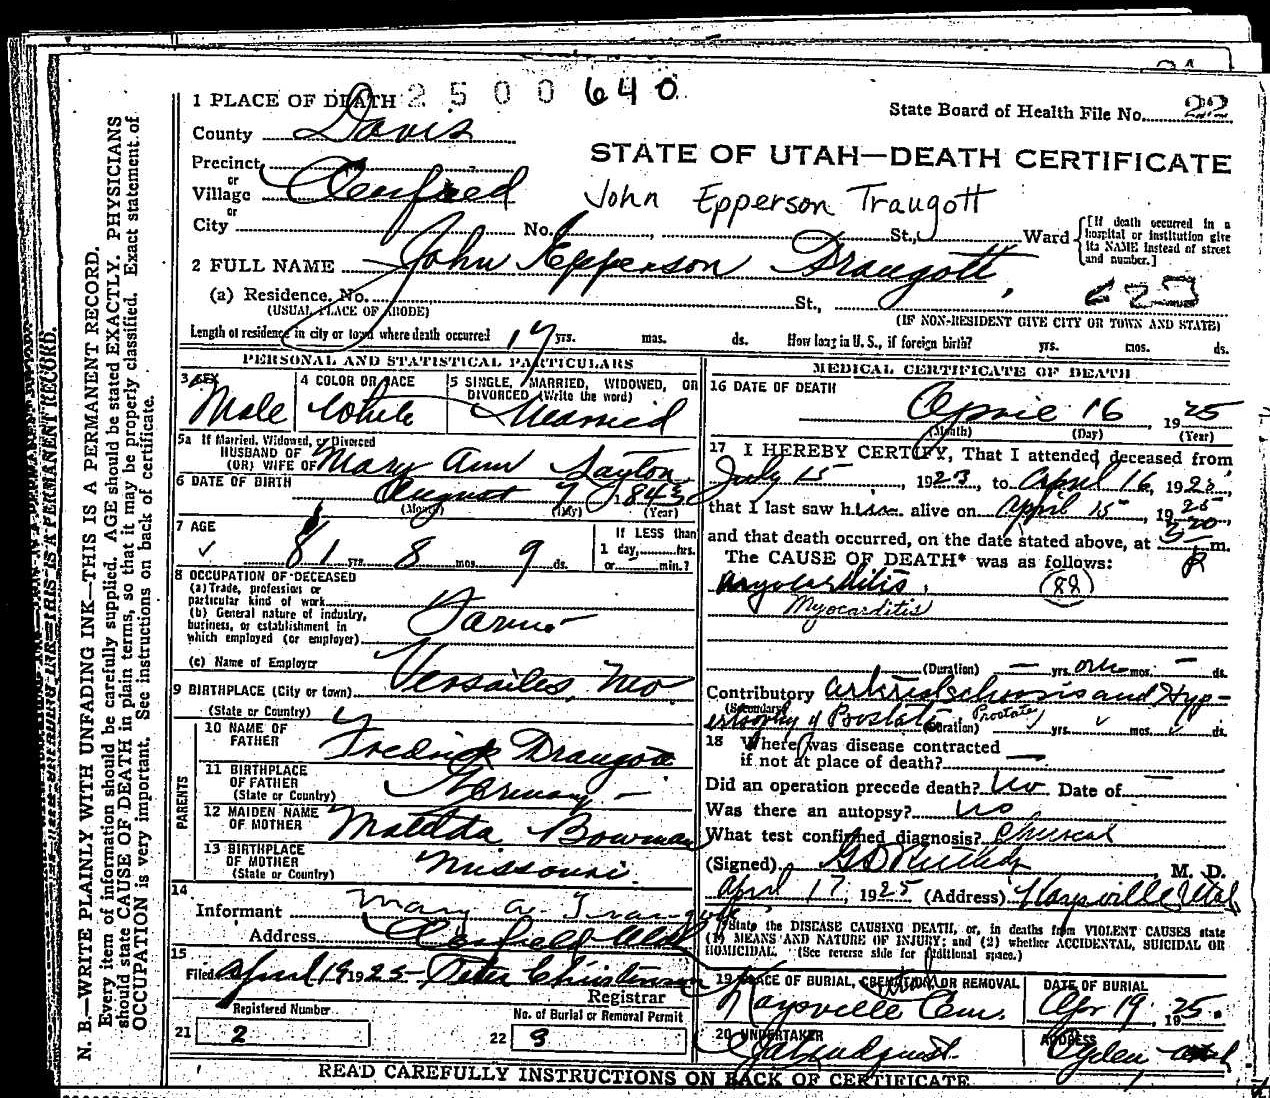 1 PLACE OF DEATH 2500640
State Board of Health File No. 22
County Davis
STATE OF UTAH—DEATH CERTIFICATE
Precinct
or
Village
John Epperson Traugott
or
City No. St., Ward
[If death occurred in a hospital or institution give its NAME instead of street and number.]
2 FULL NAME John Epperson Traugott
(a) Residence. No. St.,
(USUAL PLACE OF ABODE)
(IF NON-RESIDENT GIVE CITY OR TOWN AND STATE)
Length of residence in city or town where death occurred 17 yrs. mos. ds. How long in U. S., if foreign birth? yrs. mos. ds.
PERSONAL AND STATISTICAL PARTICULARS
3 SEX
Male
4 COLOR OR RACE
White
5 SINGLE, MARRIED, WIDOWED, OR
DIVORCED (Write the word)
Married
5a If Married, Widowed, or Divorced
HUSBAND OF
(OR) WIFE OF Mary Ann Layton
6 DATE OF BIRTH August 7 1843
(Month) (Day) (Year)
7 AGE
81 yrs. 8 mos. 9 ds.
If LESS than
1 day, hrs.
or min.?
8 OCCUPATION OF DECEASED
(a) Trade, profession or
particular kind of work
(b) General nature of industry,
business, or establishment in
which employed (or employer)
Farmer
(c) Name of Employer
9 BIRTHPLACE (City or town) Versailes, Mo
(State or Country)
PARENTS
10 NAME OF
FATHER Fredrick Traugott
11 BIRTHPLACE
OF FATHER Germany -
(State or Country)
12 MAIDEN NAME
OF MOTHER Matilda Bowman
13 BIRTHPLACE
OF MOTHER Missouri.
(State or Country)
14
Informant Mary A. Traugott
Address Utah
15
Filed April 19 1925 Peter Christensen
Registrar
Registered Number
21 2
No. of Burial or Removal Permit
22 3
MEDICAL CERTIFICATE OF DEATH
16 DATE OF DEATH
April 16, 1925
(Month) (Day) (Year)
17 I HEREBY CERTIFY, That I attended deceased from
July 15, 1923, to April 16, 1925,
that I last saw him alive on April 15, 1925,
and that death occurred, on the date stated above, at m.
The CAUSE OF DEATH* was as follows:
Myocarditis. (88)
Myocarditis
(Duration) — yrs. one mos. — ds.
Contributory arteriosclerosis and Hyp-
(Secondary)
ertrophy of Prostate (Duration) Prostate yrs. mos. ds.
18 Where was disease contracted
if not at place of death? —
Did an operation precede death? No Date of
Was there an autopsy? No
What test confirmed diagnosis? Clinical
(Signed) M. D.
April 17, 1925 (Address) Kaysville Utah
*State the DISEASE CAUSING DEATH, or, in deaths from VIOLENT CAUSES state
(1) MEANS AND NATURE OF INJURY; and (2) whether ACCIDENTAL, SUICIDAL OR
HOMICIDAL. (See reverse side for additional space.)
19 PLACE OF BURIAL, CREMATION, OR REMOVAL
Utah
Kaysville Cem.
DATE OF BURIAL
Apr 19, 1925.
20 UNDERTAKER
ADDRESS
Ogden
READ CAREFULLY INSTRUCTIONS ON BACK OF CERTIFICATE
N. B.—WRITE PLAINLY WITH UNFADING INK—THIS IS A PERMANENT RECORD.
Every item of information should be carefully supplied. AGE should be stated EXACTLY. PHYSICIANS
should state CAUSE OF DEATH in plain terms, so that it may be properly classified. Exact statement of
OCCUPATION is very important. See instructions on back of certificate.